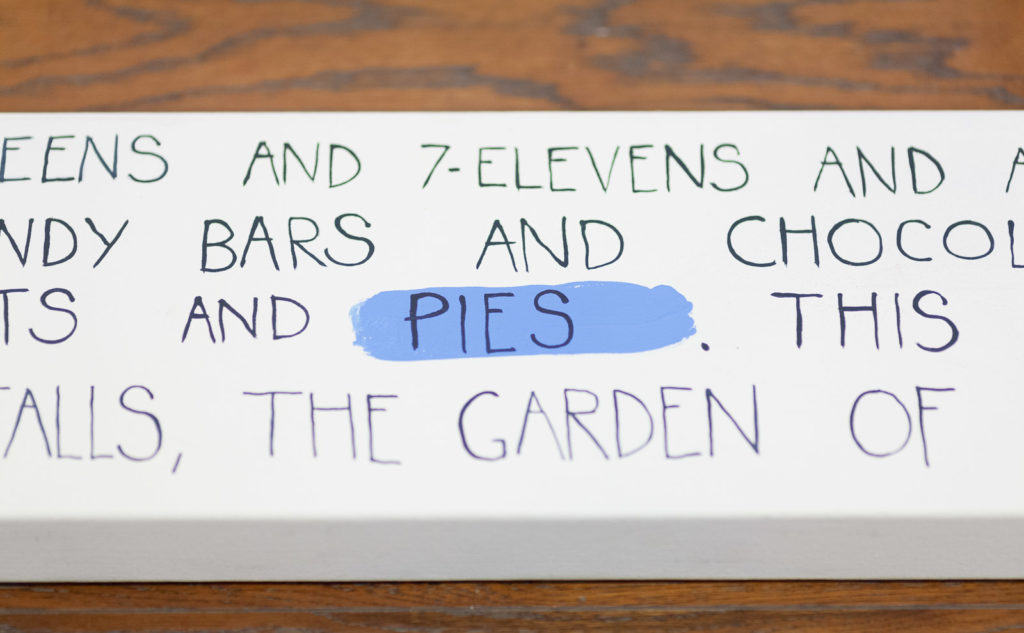 EENS AND 7-ELEVENS AND A
NDY BARS AND CHOCOL
TS AND PIES. THIS
FALLS, THE GARDEN OF